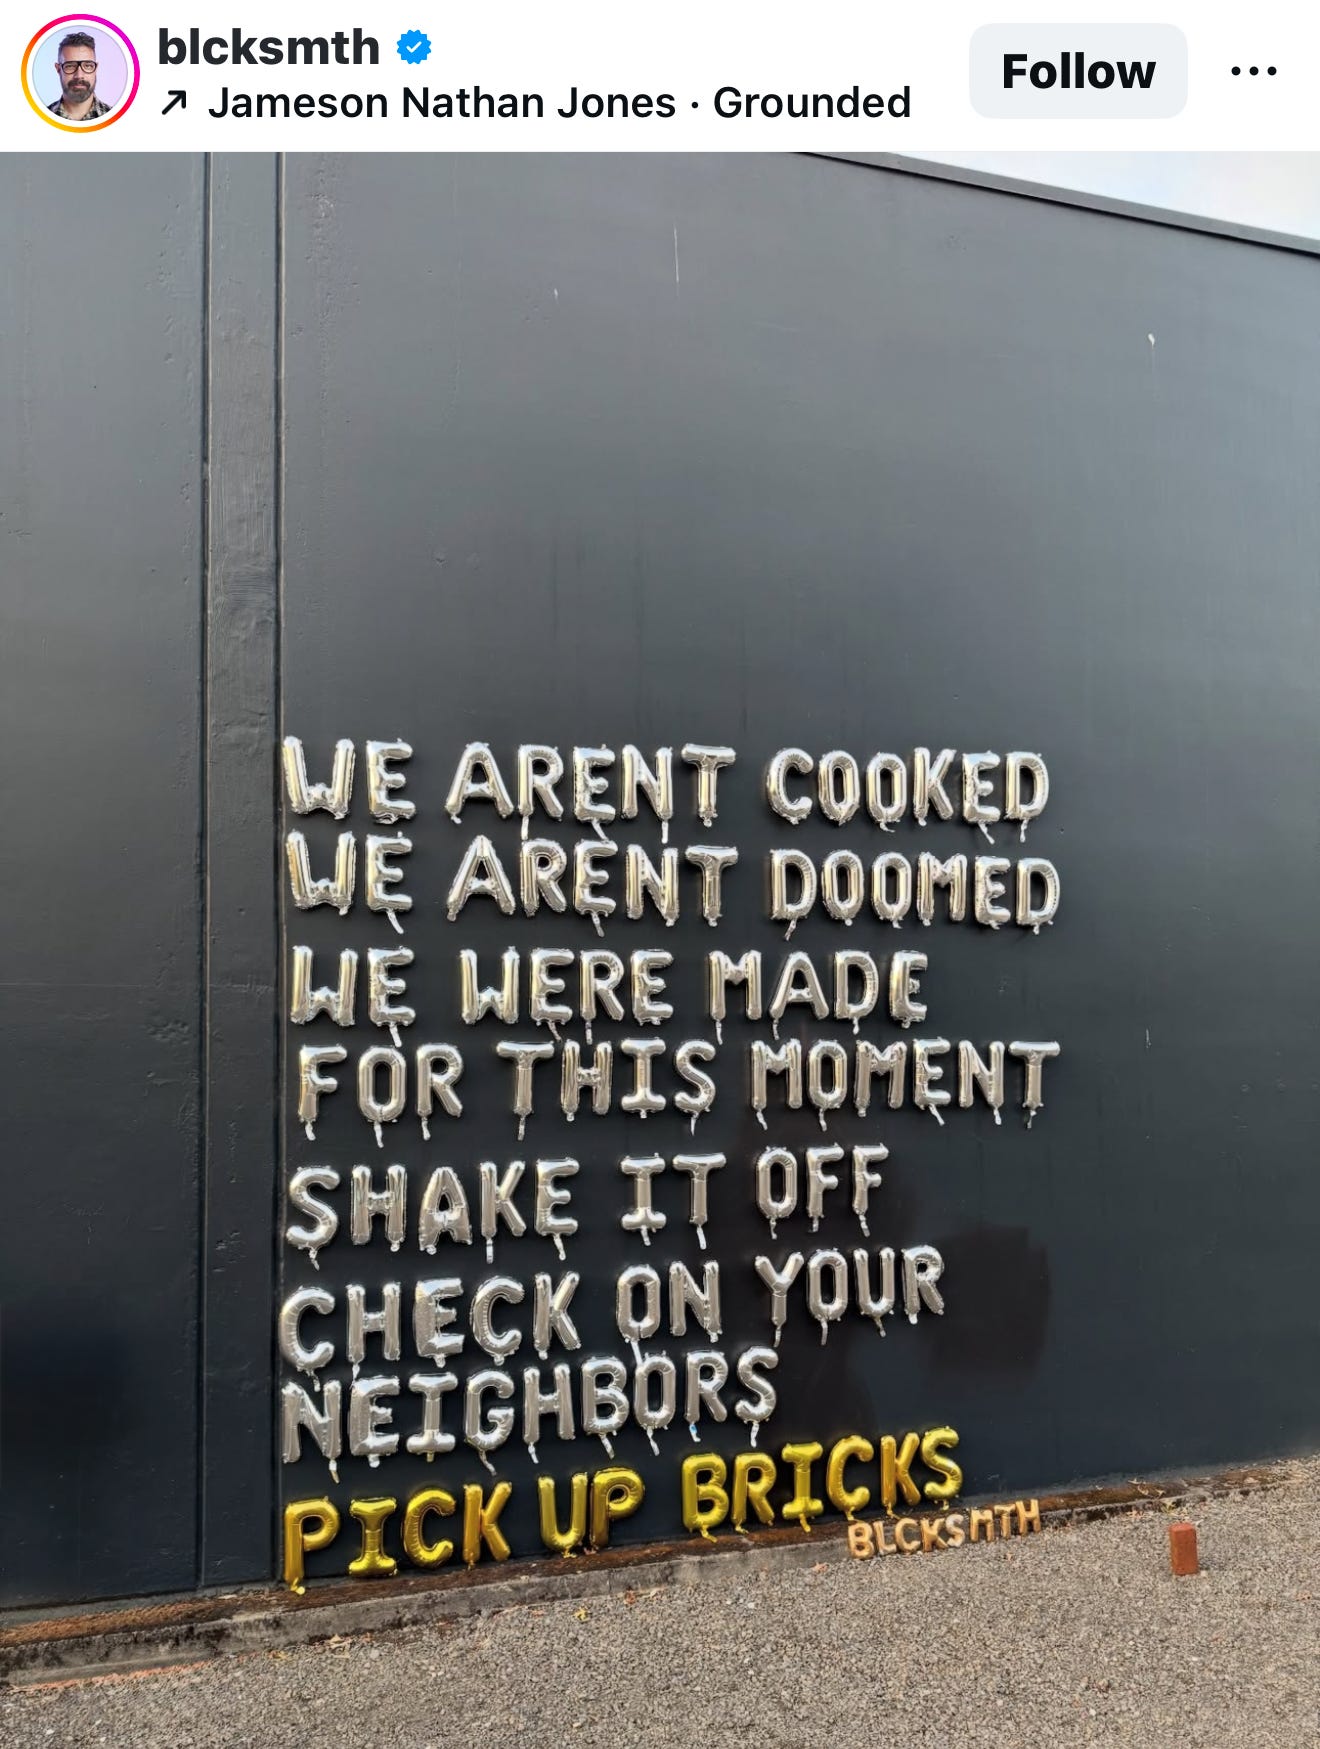 blcksmth
Jameson Nathan Jones · Grounded
Follow
WE ARENT COOKED
WE ARENT DOOMED
WE WERE MADE
FOR THIS MOMENT
SHAKE IT OFF
CHECK ON YOUR
NEIGHBORS
PICK UP BRICKS
BLCKSMTH